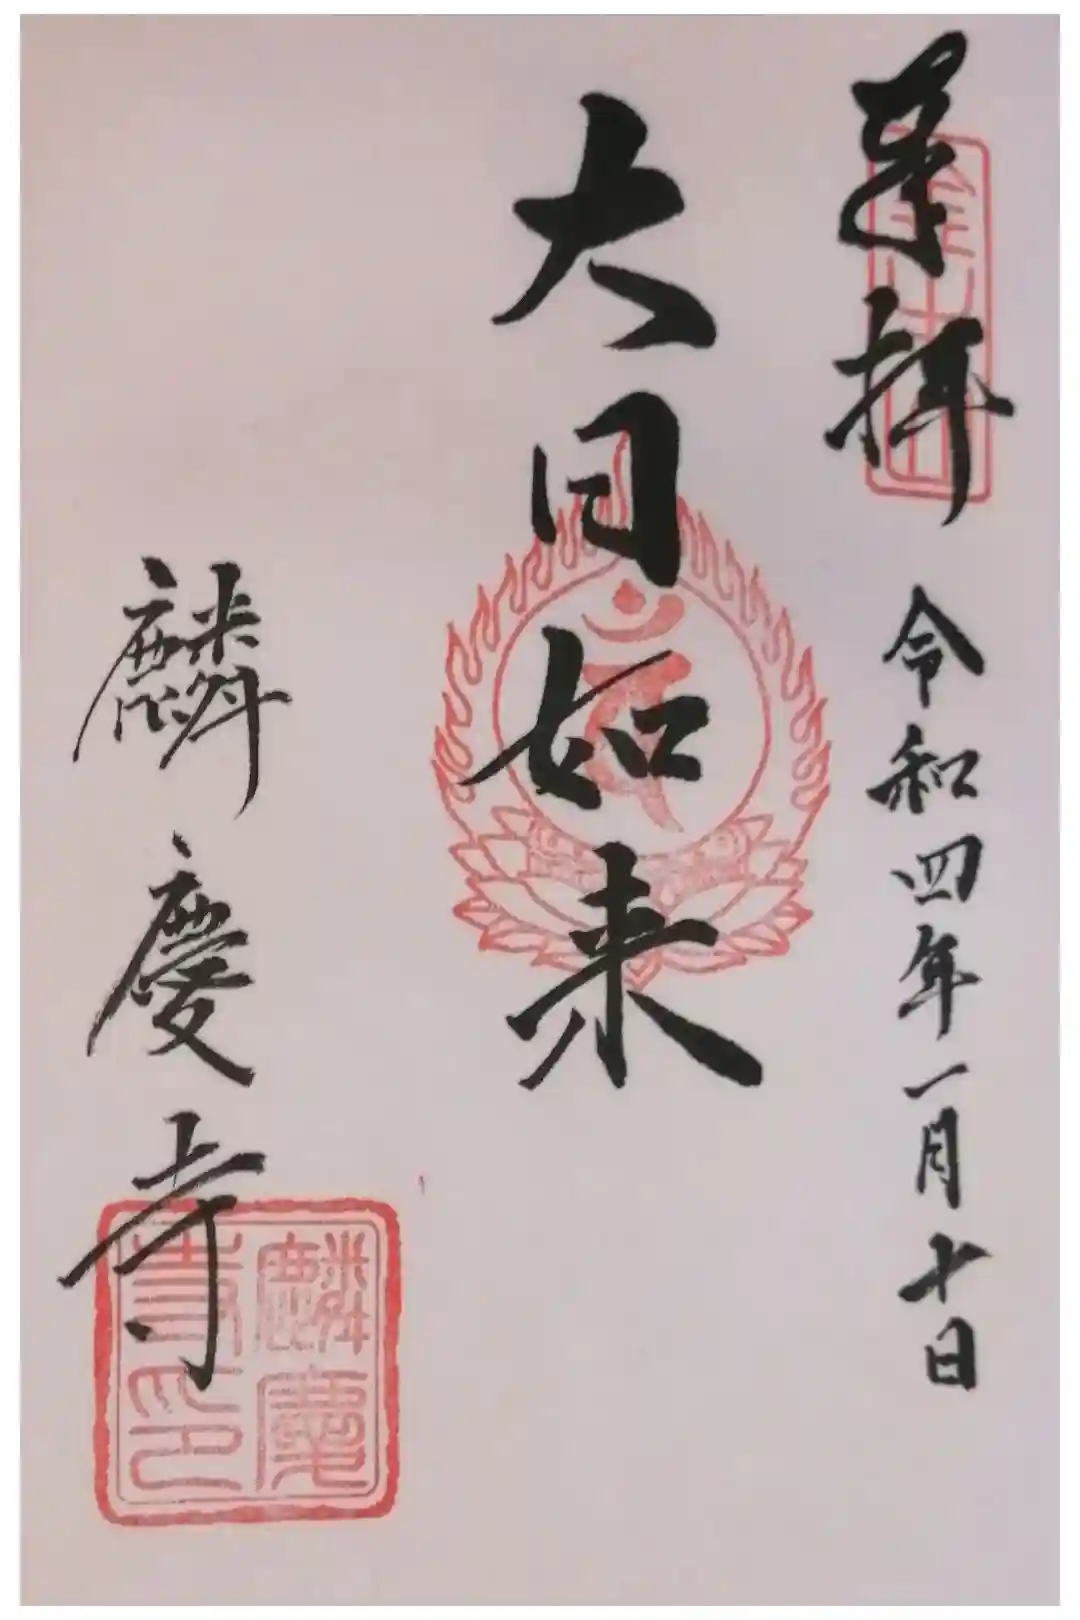 奉拝 令和四年一月十日
大日如来
麟慶寺
麟慶
寺印